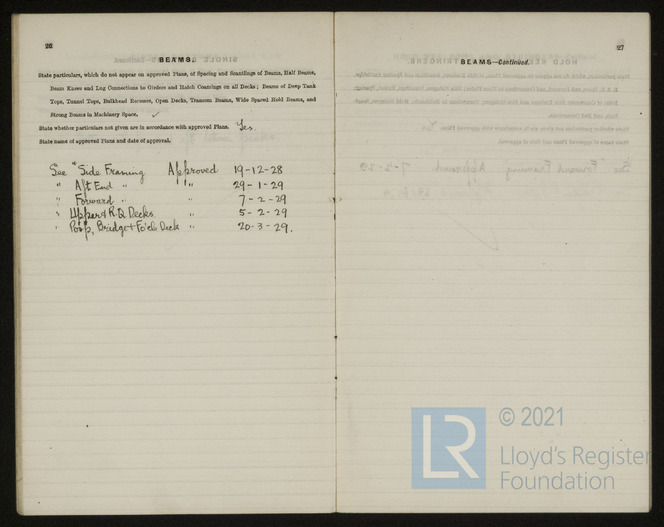 26
BEAMS.
State particulars, which do not appear on approved Plans, of Spacing and Scantlings of Beams, Half Beams,
Beam Knees and Lug Connections to Girders and Hatch Coamings on all Decks; Beams of Deep Tank
Tops, Tunnel Tops, Bulkhead Recesses, Open Decks, Transom Beams, Wide Spaced Hold Beams, and
Strong Beams in Machinery Space. ✓
State whether particulars not given are in accordance with approved Plans. Yes.
State name of approved Plans and date of approval.
See "Side Framing Approved 19-12-28
" Aft End " " 29-1-29
" Forward " " 7-2-29
" Upper & R.Q. Decks. " 5-2-29
" Poop, Bridge & Fo'c'le Deck " 20-3-29.
27
BEAMS—Continued.
LR
© 2021
Lloyd's Register
Foundation